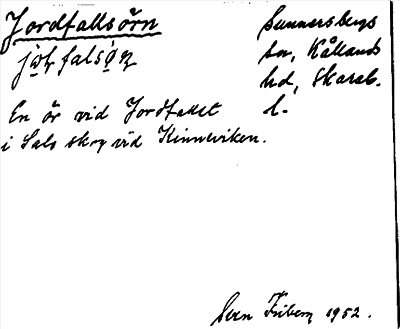 Jordfallsörn
Sunnersbergs
sn, Kållands
hd, Skarab.
l.
En ör vid Jordfallet
i Sals skog vid Kinneviken.
Sven Friberg 1952.